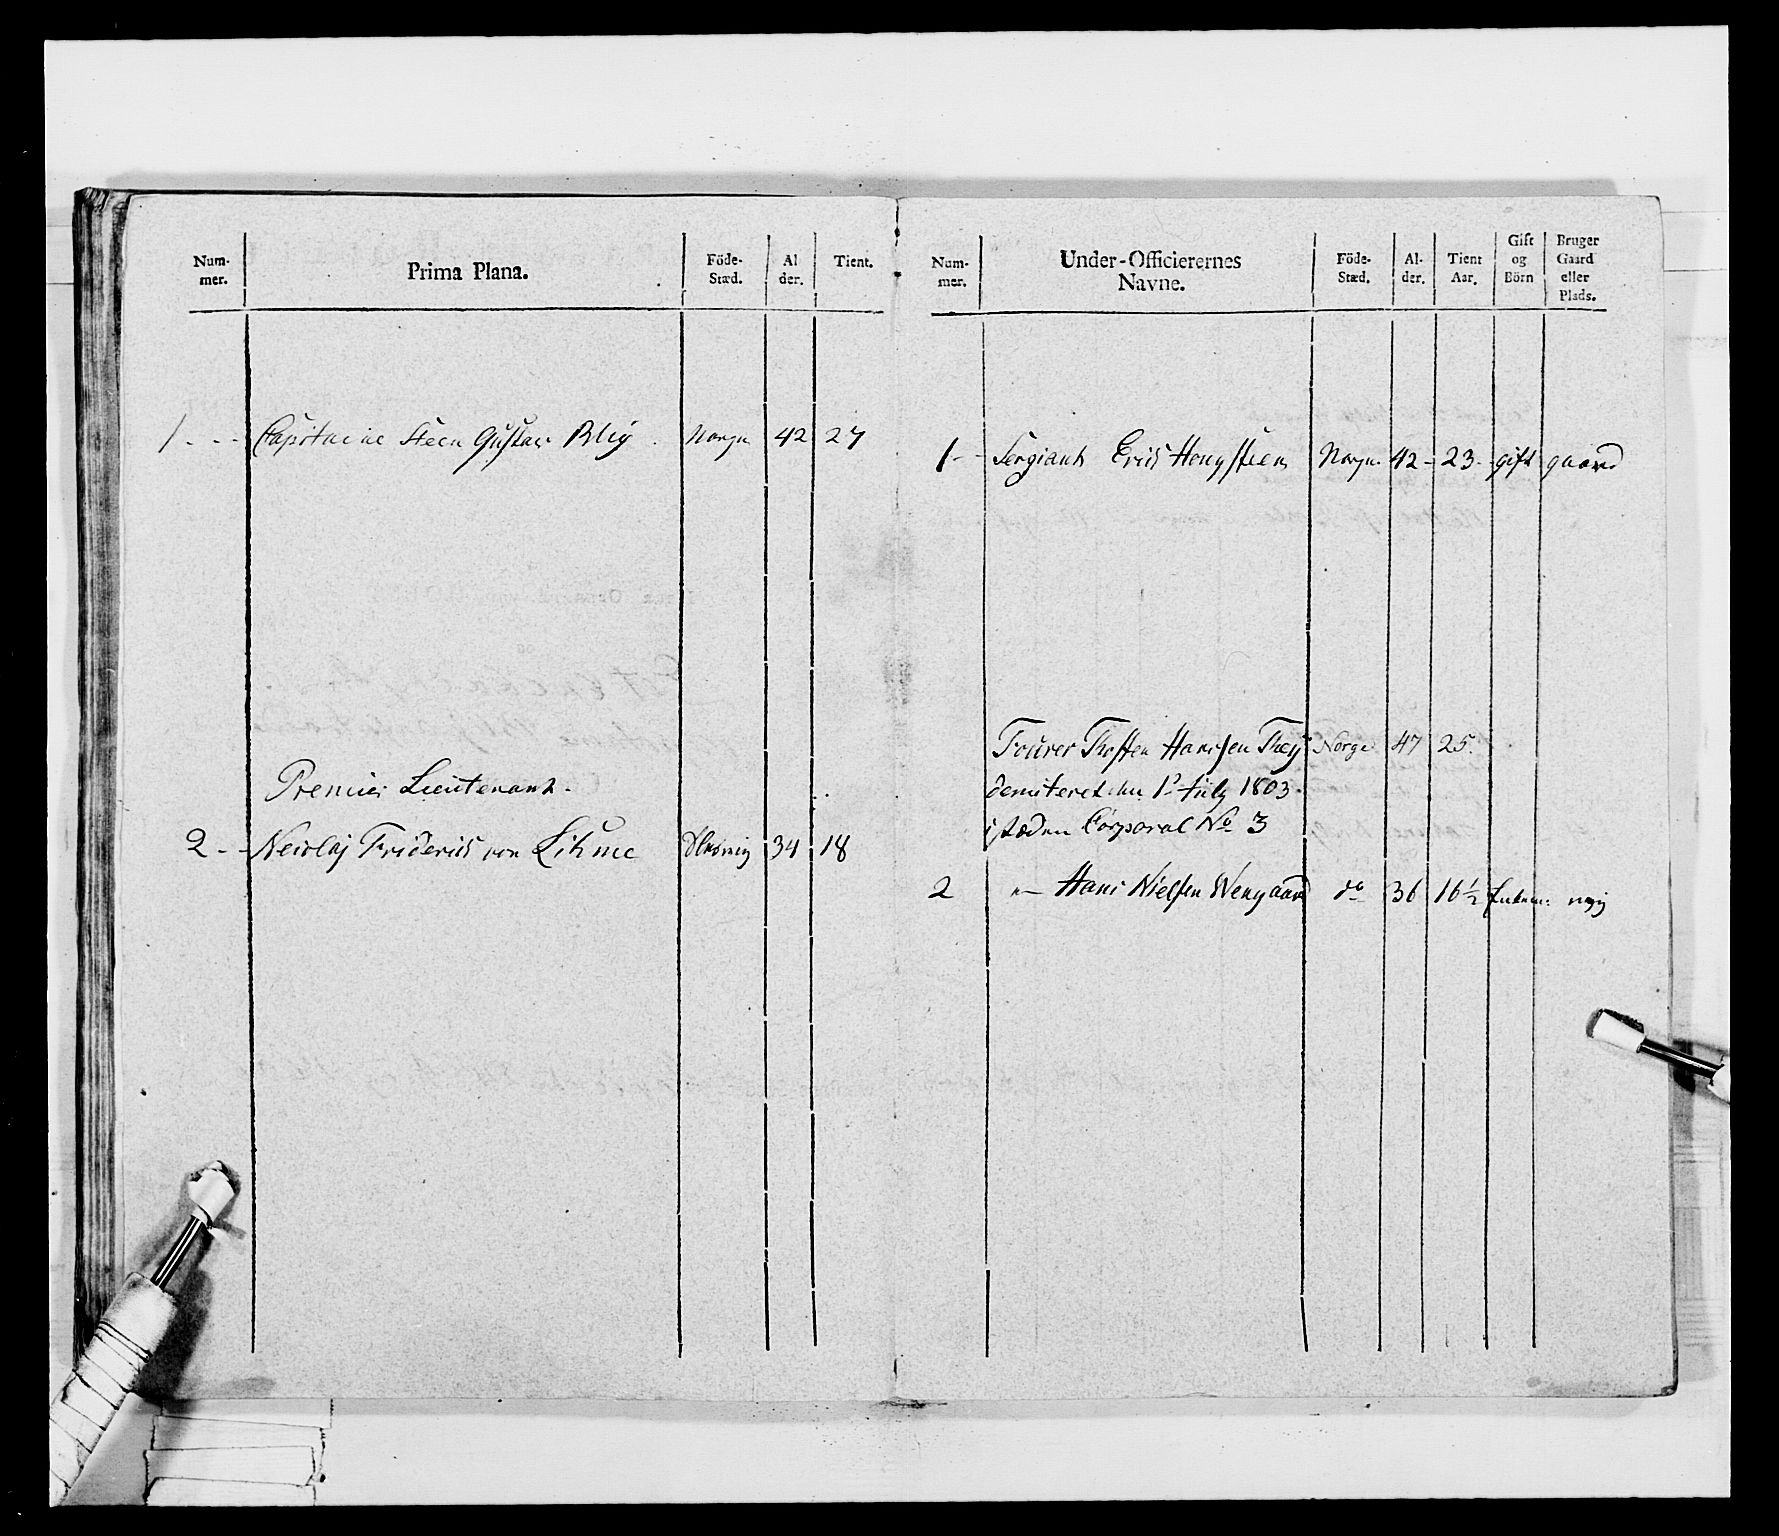 Num-
mer.
Prima Plana.
Föde-
Stæd.
Al
der.
Tient.
1 - - - Capitaine Steen Gustav Blix Norge 42 27
Premier Lieutenant.
2 - - Nicolaj Friderich von Lihme Slesvig 34 18
Num-
mer.
Under-Officierernes
Navne.
Föde-
Stæd.
Al-
der.
Tient
Aar.
Gift
og
Börn
Bruger
Gaard
eller
Plads.
1 - - Sergiant Erich Haugsteen Norge 42 - 23 - gift gaard
Fourer Thosten Hansen Norge 47 25.
demiteret den 1te July 1803.
i stæden Corporal No 3
2 " — Hans Nielsen Wengaard do 36 16 1/2